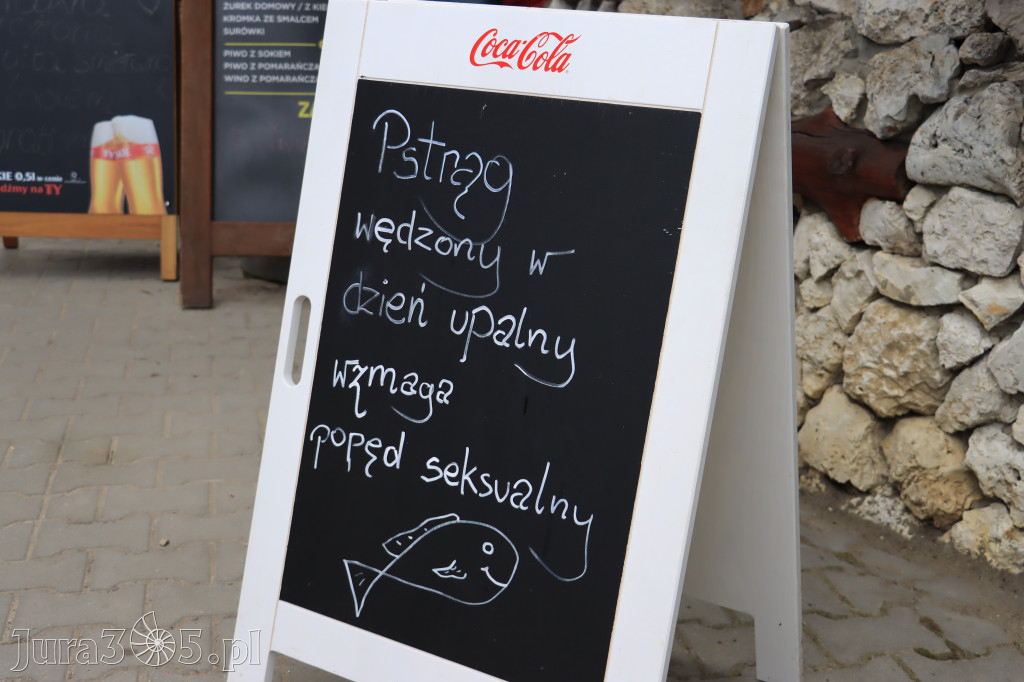 ŻUREK DOMOWY / Z KIE
KROMKA ZE SMALCEM
SURÓWKI
PIWO Z SOKIEM
PIWO Z POMARAŃCZĄ
WINO Z POMARAŃCZĄ
KIE 0,5l w cenie
dźmy na TY
Coca-Cola
Pstrąg
wędzony w
dzień upalny
wzmaga
popęd seksualny
Jura365.pl